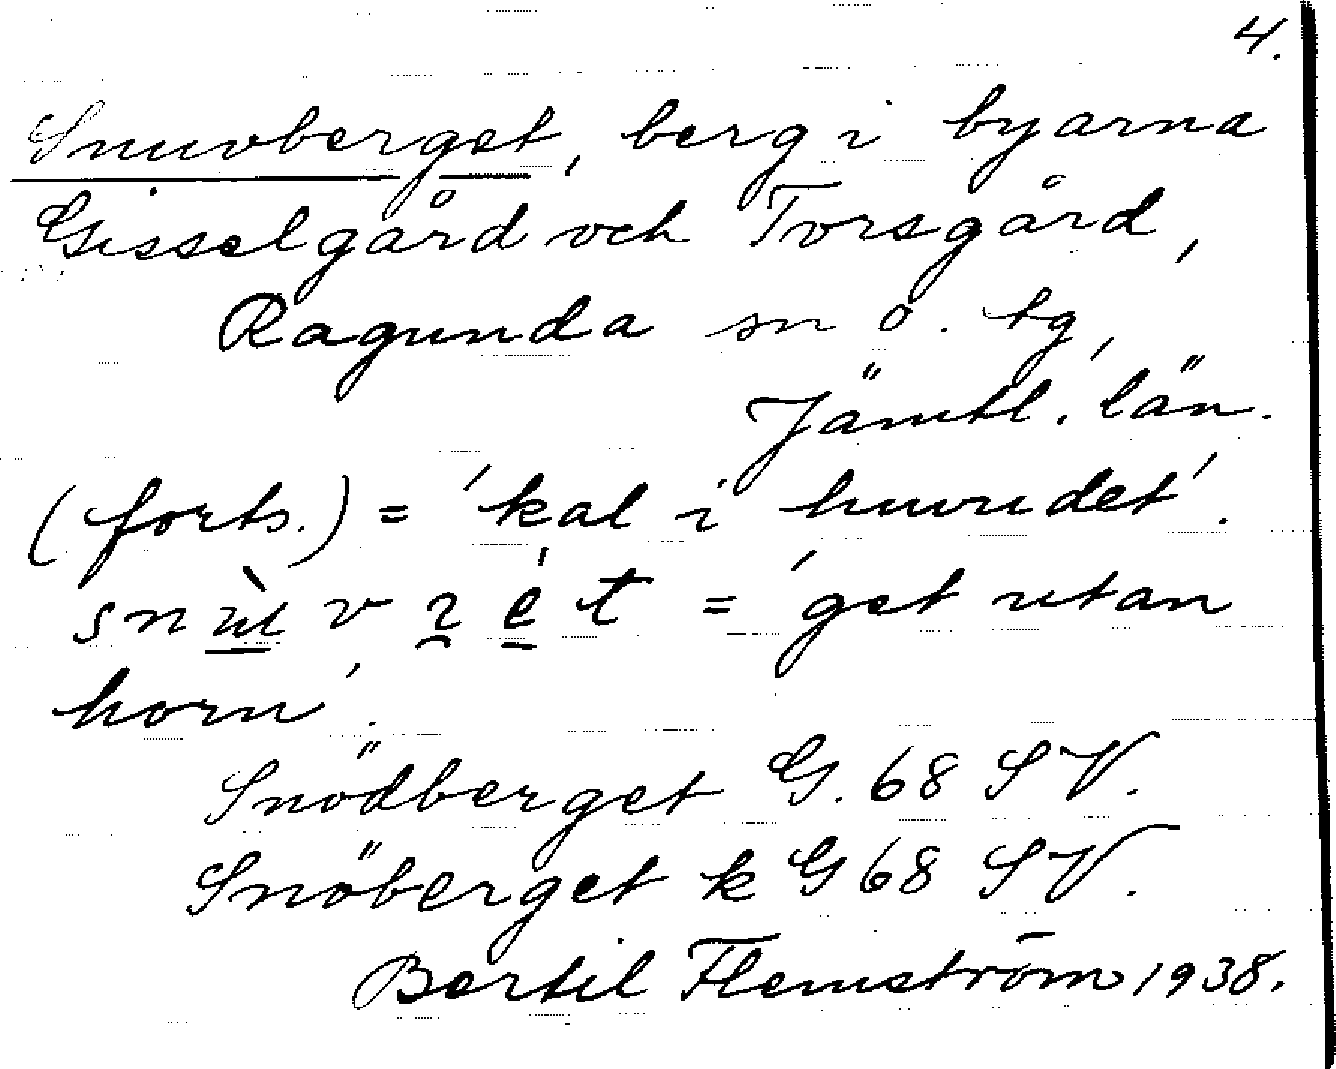 4.
Snuvberget, berg i byarna
Gisselgård och Torsgård,
Ragunda sn ö. tg,
Jämtl. län.
(forts.) = 'kal i huvudet'.
= 'get utan
horn'.
Snödberget G. 68 SV.
Snöberget k G 68 SV.
Bertil Flemström 1938.